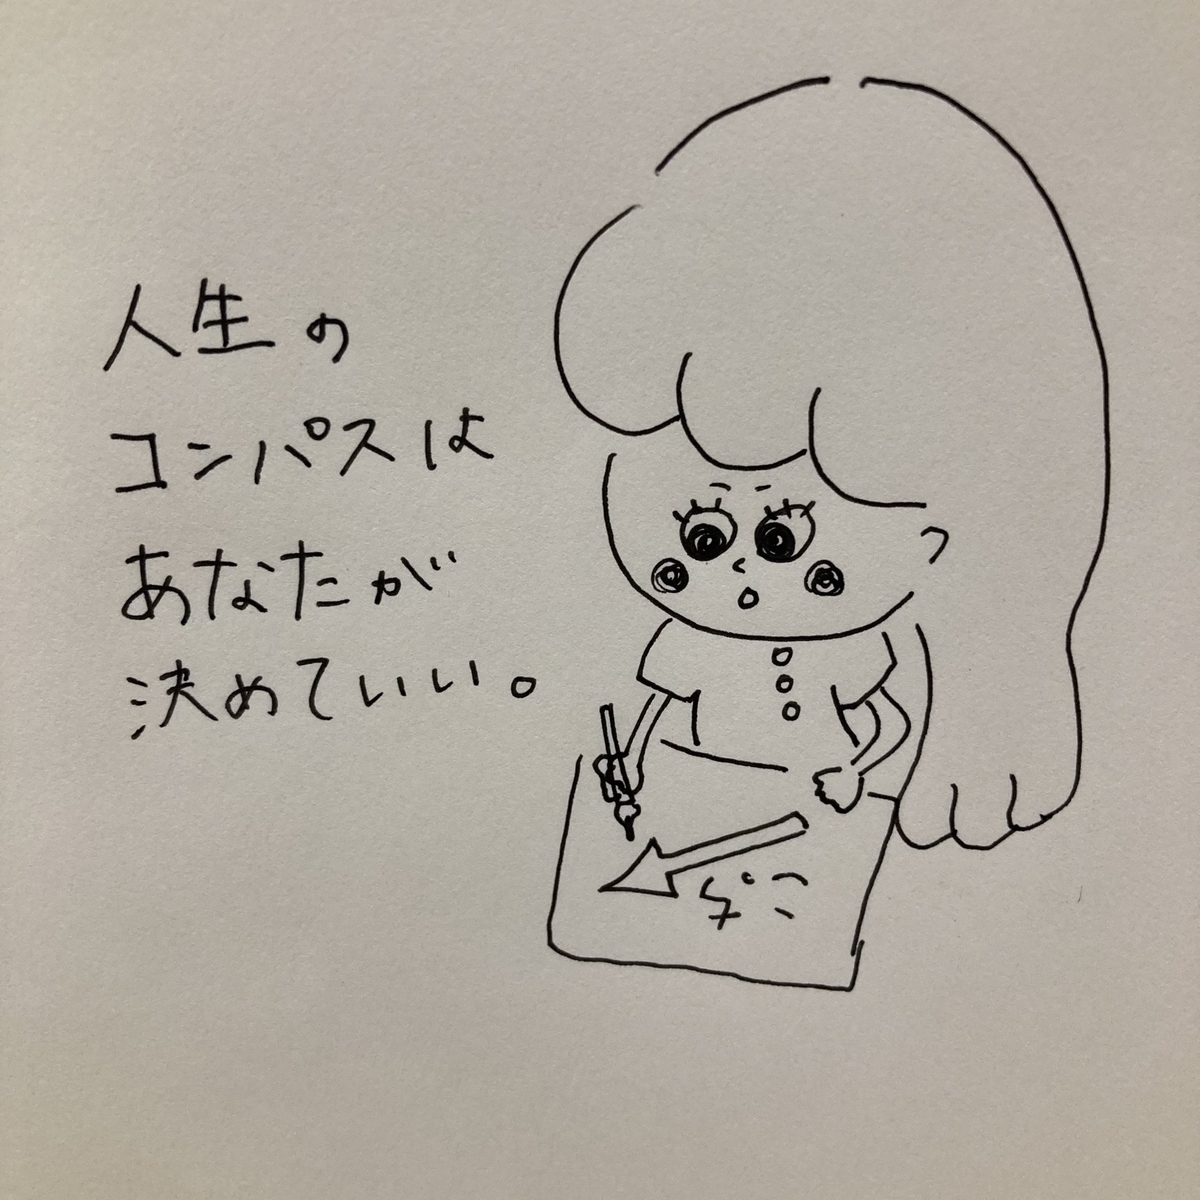 人生の
コンパスは
あなたが
決めていい。